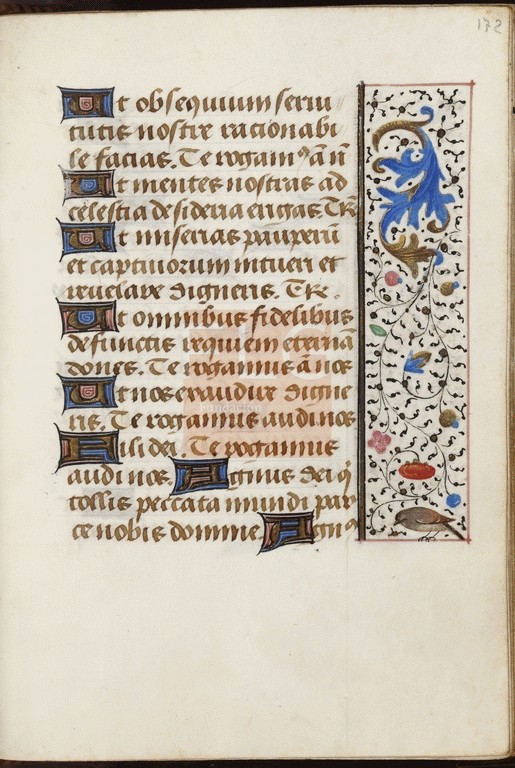 172
Ut obsequium serui
tutis nostre racionabi
le facias. Te rogamꝰ a̅ n̅
Ut mentes nostras ad
celestia desideria erigas TR
Ut miserias paupeꝝu̅
et captiuorum intueri et
reuelare digneris. TR.
Ut omnibus fidelibus
defunctis requiem eterna̅
dones. Te rogamus a̅ nos
Ut nos exaudire digne
ris. Te rogamus audi nos
Fili dei Te rogamus
audi nos. Agnus dei q̅
tollis peccata mundi par
ce nobis domine Agnꝰ